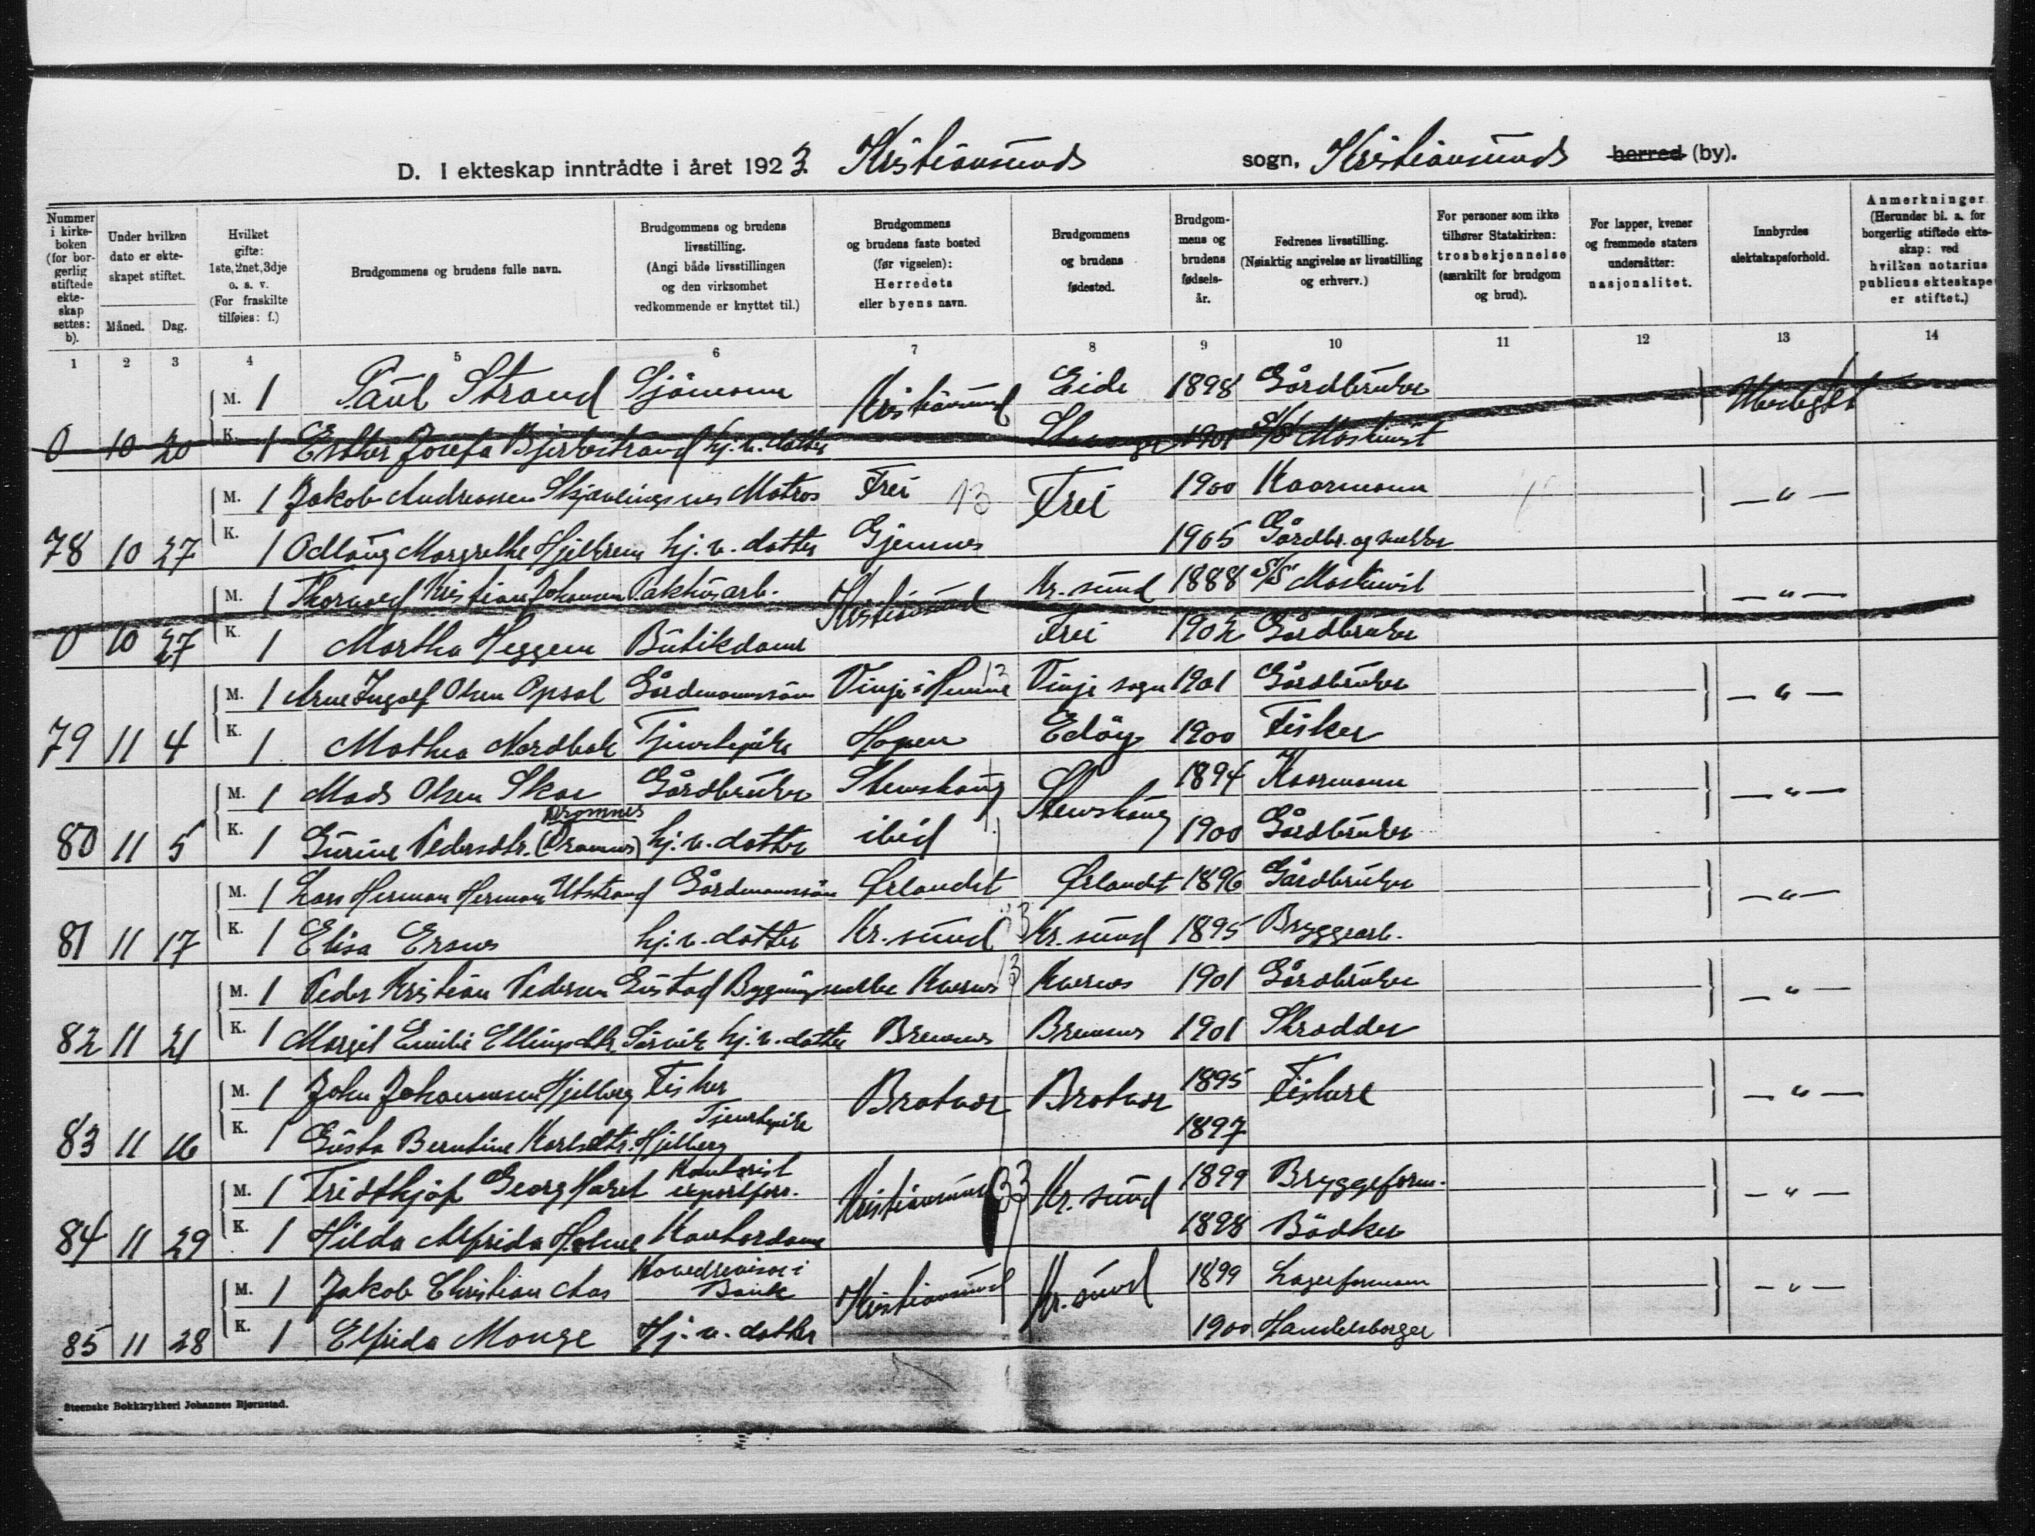 D. I ekteskap inntrådte i året 1923. Kristiansunds sogn, Kristiansunds herred (by).
Nummer i kirkeboken (for borgerlig stiftede ekteskap settes: b).
Under hvilken dato er ekteskapet stiftet.
Måned. Dag.
Hvilket gifte: 1ste, 2net, 3dje o. s. v. (For fraskilte tilføies: f.)
Brudgommens og brudens fulle navn.
Brudgommens og brudens livsstilling. (Angi både livsstillingen og den virksomhet vedkommende er knyttet til.)
Brudgommens og brudens faste bosted (før vigselen): Herredets eller byens navn.
Brudgommens og brudens fødested.
Brudgommens og brudens fødselsår.
Fedrenes livsstilling. (Nøiaktig angivelse av livsstilling og erhverv.)
For personer som ikke tilhører Statskirken: trosbekjennelse (særskilt for brudgom og brud).
For lapper, kvener og fremmede staters undersåtter: nasjonalitet.
Innbyrdes slektskapsforhold.
Anmerkninger (Herunder bl. a. for borgerlig stiftede ekteskap: ved hvilken notarius publicus ekteskapet er stiftet.)
1 2 3 4 5 6 7 8 9 10 11 12 13 14
M. 1 Paul Strand Sjömann Kristiansund Eide 1898 Gårdbruker
0 10 20 K. 1 Esther Josefa Bjerkestrand hj. v. datter 1901 S/S Maskinist
M. 1 Jakob Andreassen Skjevlingsnes Matros Frei 13 Frei 1900 Kaarmann — " —
78 10 27 K. 1 Odlaug Margrethe Hjelbrem hj. v. datter Gjemnes 1905 Gårdbr. og smed
M. 1 Thorvald Kristian Johansen Pakhusarb. Kristiansund Kr. sund 1888 S/S Maskinist — " —
0 10 27 K. 1 Martha Heggem Butikdame Frei 1902 Gårdbruker
M. 1 Arne Ingolf Olsen Opsal Gårdmannssön Vinje i Hemne 13 Vinje sogn 1901 Gårdbruker — " —
79 11 4 K. 1 Mathea Nordbak Tjenestepike Hopen Edöy 1900 Fisker
M. 1 Mads Olsen Skar Gårdbruker Stemshaug Stemshaug 1894 Kaarmann — " —
Dromnes
80 11 5 K. 1 Gurine Pedersdtr. (Dromnes) hj. v. datter ibid 1900 Gårdbruker
M. 1 Lars Herman Herman Utstrand Gårdmannssön Ørlandet Ørlandet 1896 Gårdbruker — " —
81 11 17 K. 1 Elisa Ersnes hj. v. datter Kr. sund Kr. sund 1895 Bryggearb.
M. 1 Peder Kristian Pedersen Gustad Bygningssnekker Kvernes 13 Kvernes 1901 Gårdbruker — " —
82 11 21 K. 1 Margit Emilie Ellingsdtr. Sörvik hj. v. datter Bremnes Bremnes 1901 Skrædder
M. 1 John Johannessen Hjelberg Fisker Bratvær Bratvær 1895 Fiskere — " —
83 11 16 K. 1 Gusta Berntine Karlsdtr. Hjelberg Tjenestepike 1897
M. 1 Fridthjof Georg Harst Kontorist exportforr. Kristiansund 33 Kr. sund 1899 Bryggeform. — " —
84 11 29 K. 1 Hilda Alfrida Holme Kontordame 1898 Bödker
M. 1 Jakob Christian Aas Hovedrevisor i Bank Kristiansund Kr. sund 1899 Lagerformann — " —
85 11 28 K. 1 Elfrida Monge Hj. v. datter 1900 Handelsborger
Steenske Boktrykkeri Johannes Bjørnstad.